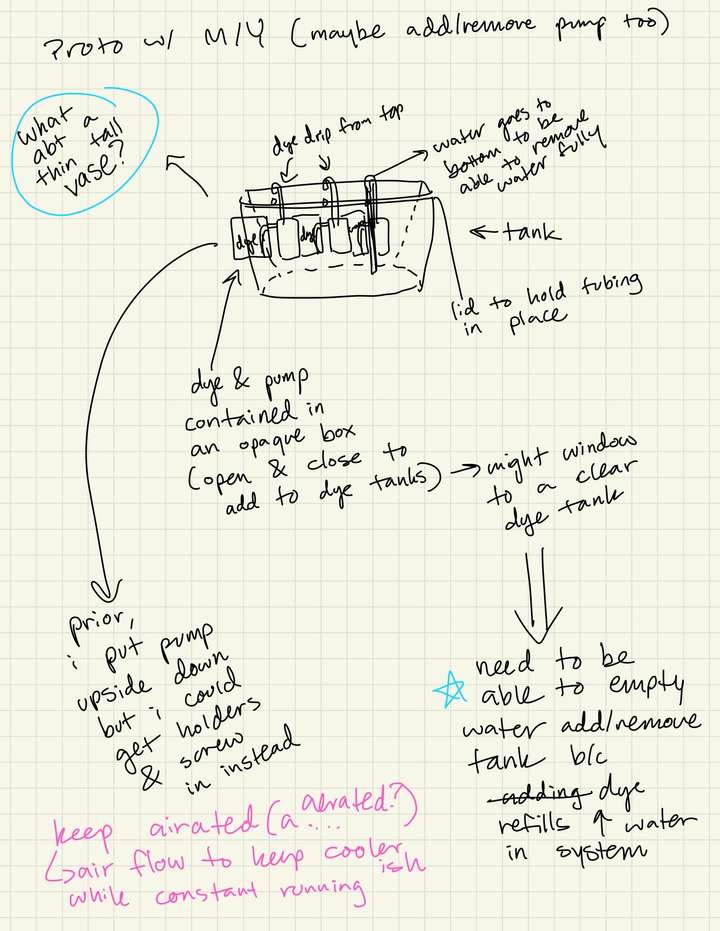 Proto w/ M/Y (maybe add/remove pump too)
what a
abt a
thin tall
vase?
dye drip from top
water goes to
bottom to be
able to remove
water fully
dye
dye
← tank
lid to hold tubing
in place
dye & pump
contained in
an opaque box
(open & close to
add to dye tanks)
→ might window
to a clear
dye tank
prior,
i put pump
upside down
but i could
get holders
& screw
in instead
☆ need to be
able to empty
water add/remove
tank b/c
adding dye
refills ↑ water
in system
keep airated (a aerated?)
....
↳ air flow to keep cooler
ish
while constant running